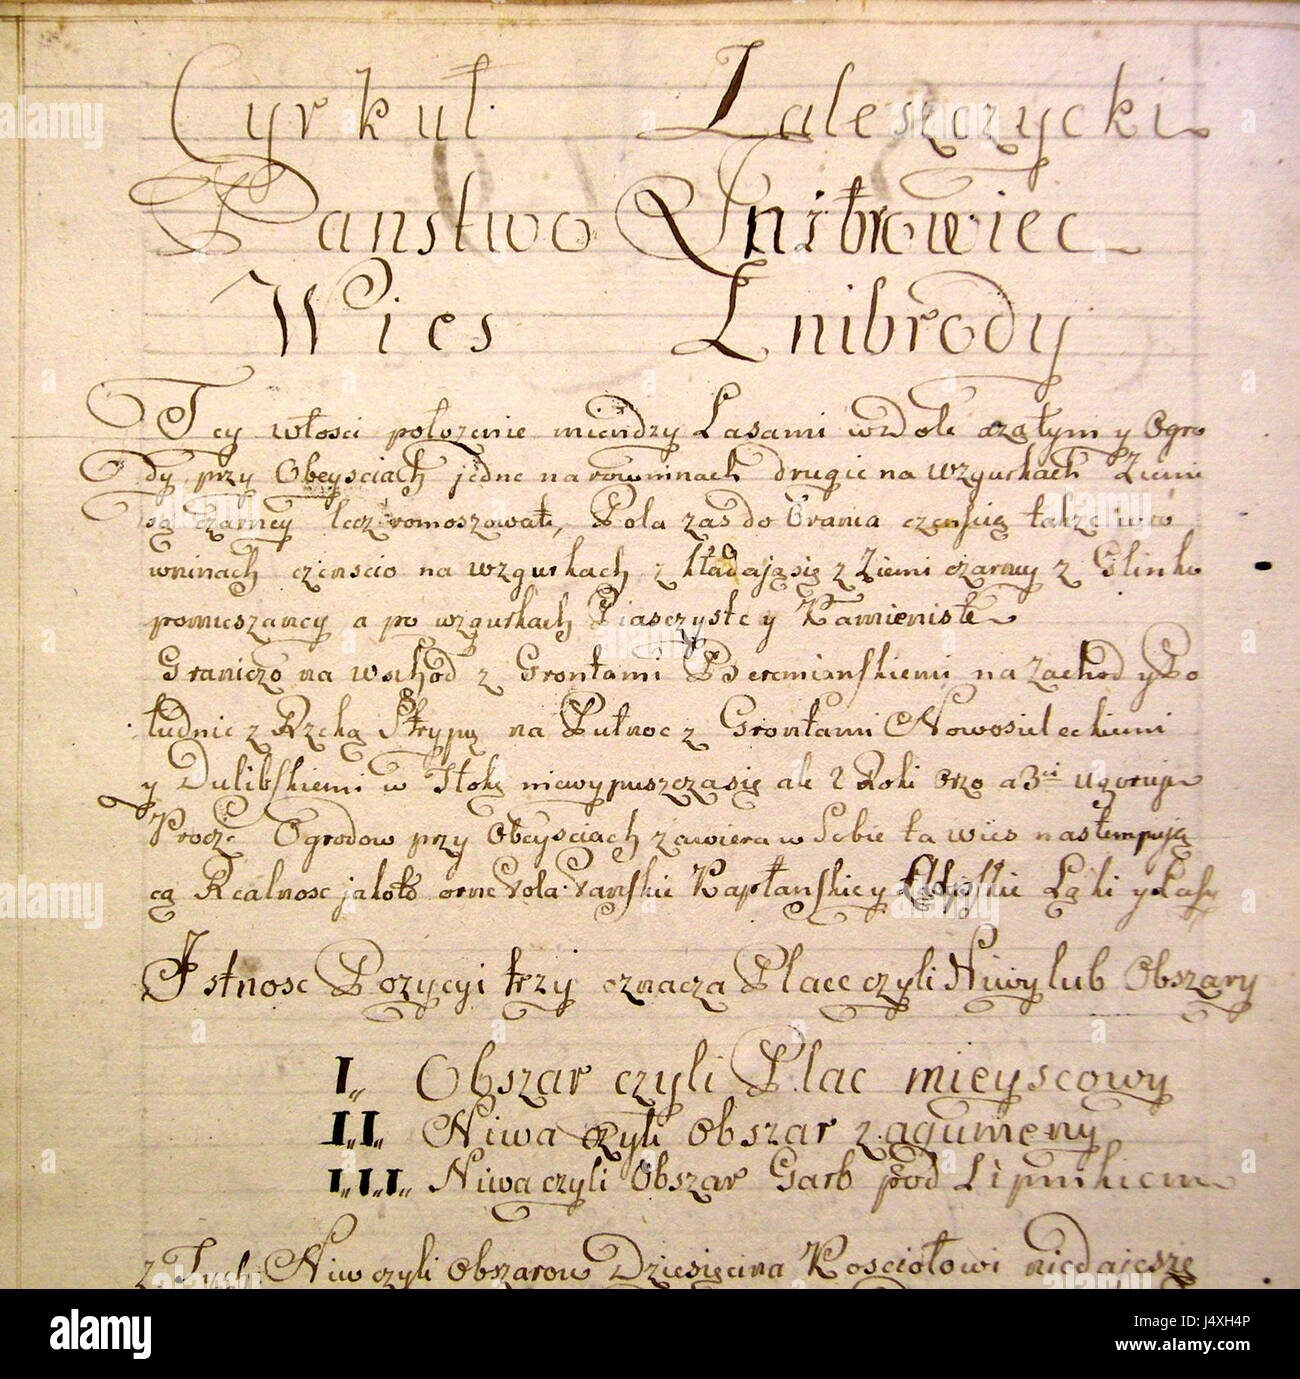 Cyrkuł Zaleszczycki
Panstwo Jnstrowiec
Wies Znibrody
Tey włosci połozenie miendzy Lasami w dole czałym y Ogro
dy przy Obeysciach jedne na rowninach drugie na wzgurkach Ziemi
są czarney lecz romoszowate, Pola zas do Orania czenscią takze w ro
wninach czenscio na wzgurkach z kładają się z Ziemi czarny z Glinko
pomieszaney a po wzgurkach Piasczyste y Kamieniste
Graniczo na wschod z Grontami Beremianskiemi na Zachod y Po
łudnie z Rzeką Strypą na Pułnoc z Grontami Nowosieleckiemi
y Dulibskiemi w Stokę niewypuszcza się ale 2 Roki Orzo a 3ci Ugoruje
Procz Ogrodow przy Obeysciach zawiera w Sobie ta wies nastempują
cą Realnosc jakoto orne Pola Panskie Kapłanskie y Chłopskie Łąki y Lasy
Jstnosc Pozycyi trzy oznacza Place czyli Niwy lub Obszary
I„ Obszar czyli Plac mieyscowy
II„ Niwa czyli Obszar zagumeny
III„ Niwa czyli Obszar Garb pod Lipnikiem
z Tych Niw czyli Obszarow Dziesięcina Kosciołowi niedaiesię
alamy
Image ID: J4XH4P
www.alamy.com